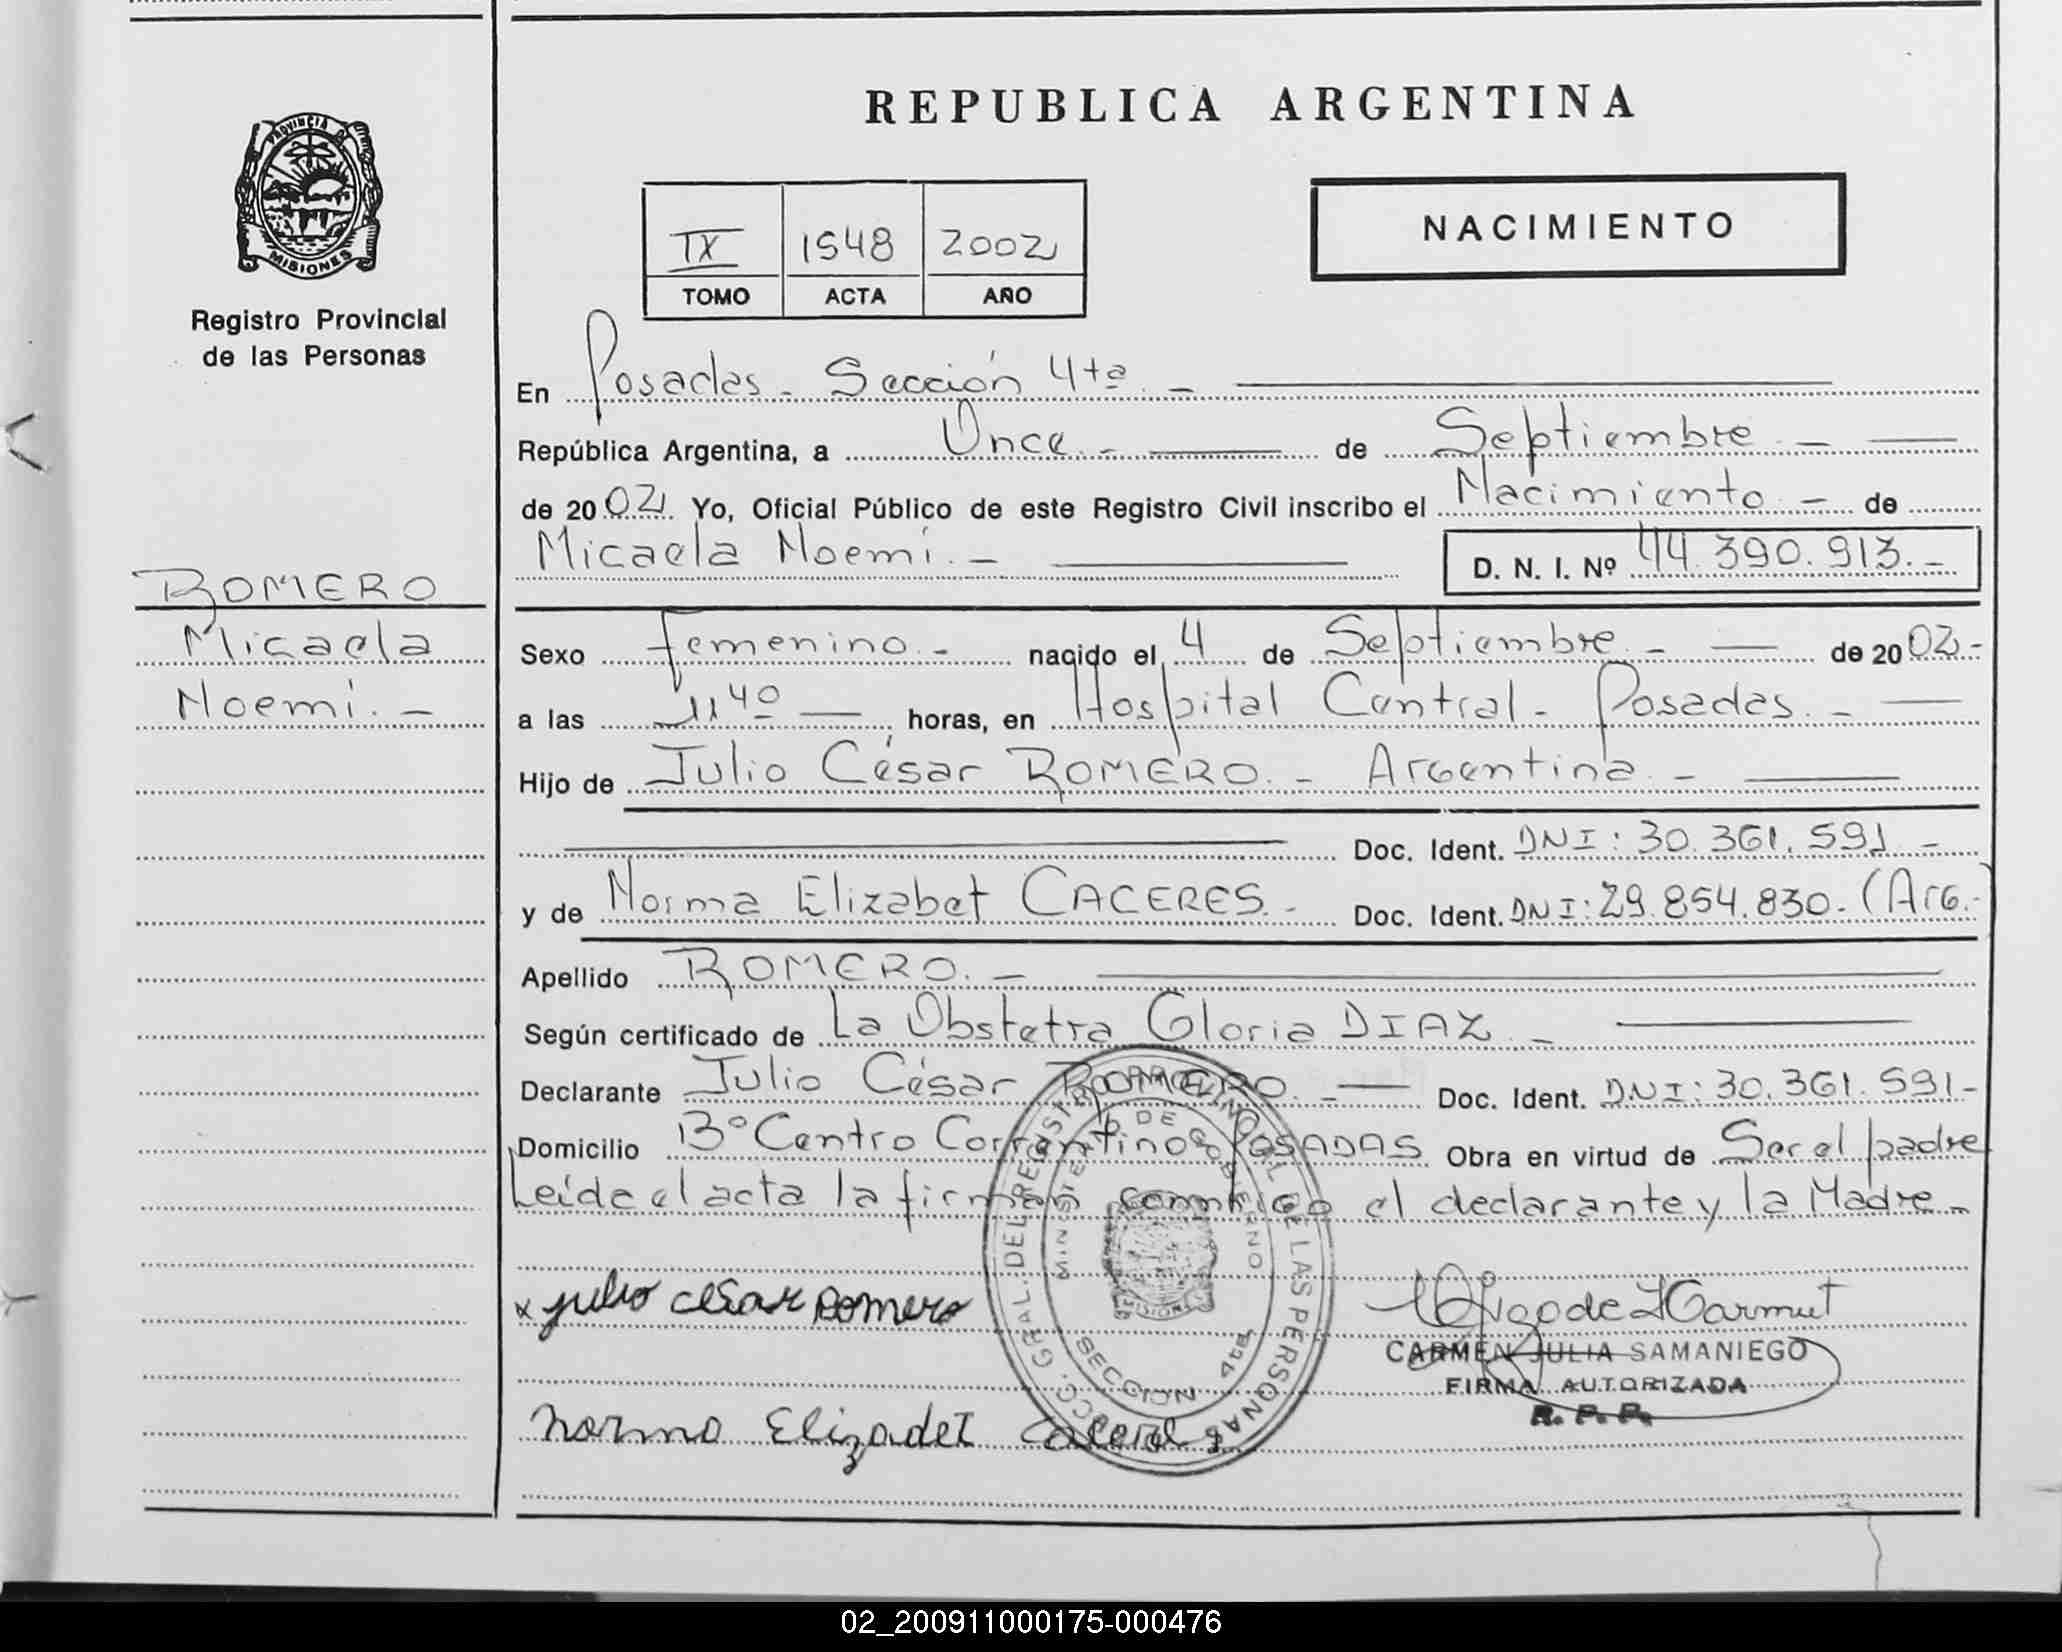 REPUBLICA ARGENTINA
PROVINCIA DE
MISIONES
Registro Provincial
de las Personas
IX 1548 2002
TOMO ACTA AÑO
NACIMIENTO
En Posadas - Sección 4ta. -
República Argentina, a Once. - de Septiembre. -
de 2002. Yo, Oficial Público de este Registro Civil inscribo el Nacimiento. - de
Micaela Noemí. - D. N. I. Nº 44.390.913. -
ROMERO
Micaela
Noemí. -
Sexo femenino. - nacido el 4 de Septiembre. - de 2002.-
a las 11 40 horas, en Hospital Central - Posadas. -
Hijo de Julio César ROMERO. - Argentina. -
Doc. Ident. DNI: 30.361.591 -
y de Norma Elizabet CACERES. - Doc. Ident. DNI: 29.854.830. (Arg.-
Apellido ROMERO. -
Según certificado de La Obstetra Gloria DIAZ. -
Declarante Julio César ROMERO. - Doc. Ident. DNI: 30.361.591-
Domicilio Bº Centro Correntino POSADAS Obra en virtud de Ser el padre
Leída el acta la firman conmigo el declarante y la Madre. -
x julio cesar Romero
CARMEN JULIA SAMANIEGO
FIRMA AUTORIZADA
R. P. P.
norma Elizadet Caceres
GRAL. DEL REGISTRO PROVINCIAL DE LAS PERSONAS
MINISTERIO DE GOBIERNO
SECCION 4ta
02_200911000175-000476